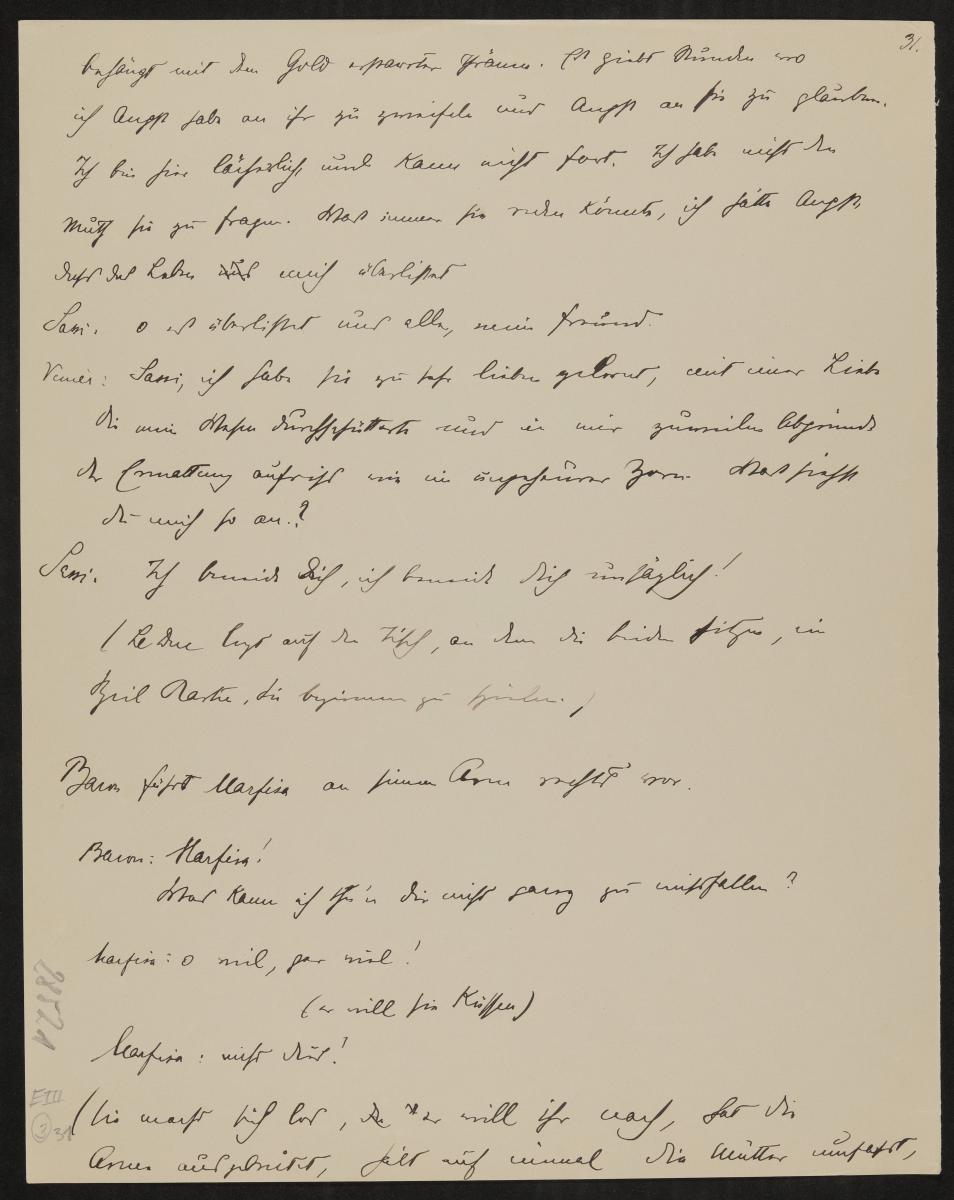 31.
behängt mit dem Gold ersparter Thränen. Es giebt Stunden wo
ich Angst habe an ihr zu zweifeln und Angst an sie zu glauben.
Ich bin hier lächerlich und kann nicht fort. Ich habe nicht den
Muth sie zu fragen. Was immer sie reden könnte, ich hätte Angst,
dass das Leben mich überlistet
Sassi. O es überlistet uns alle, mein Freund.
Venier: Sassi, ich habe sie zu sehr lieben gelernt, mit einer Liebe
die mein Wesen durchschüttert und in mir zuweilen Abgründe
der Ermattung aufreisst wie ein ungeheurer Zorn. Was siehst
du mich so an?
Sassi. Ich beneide Dich, ich beneide dich unsäglich!
(Le Duc legt auf den Tisch, an dem die beiden sitzen, ein
Spiel Karten, sie beginnen zu spielen.)
Baron führt Marfisa an seinem Arm rechts vor.
Baron: Marfisa!
Was kann ich thun dir nicht ganz zu missfallen?
Marfisa: O viel, gar viel!
(er will sie küssen)
Marfisa: nicht das!
(sie macht sich los, er will ihr nach, hat die
Arme ausgebreitet, hält auf einmal die Mutter umfasst,
EIII
3 31